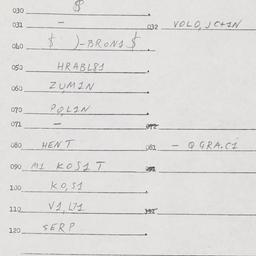 030 $
031 - 032 VOLO, JC+1N
040 $ )-BRON1 $
050 HRABL81
060 ZUM1N
070 POL1N
071 -
080 HENT 081 - OGRA.C1
090 M1 KOS1T
100 KO,S1
110 V1,LI1
120 SERP